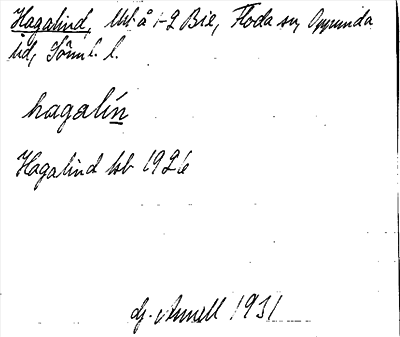 Hagalind, Utt å 1-2 Bie, Floda sn, Oppunda
hd, Sörml. l.
hagalín
Hagalind hsb 1926
Hj. Annell 1931